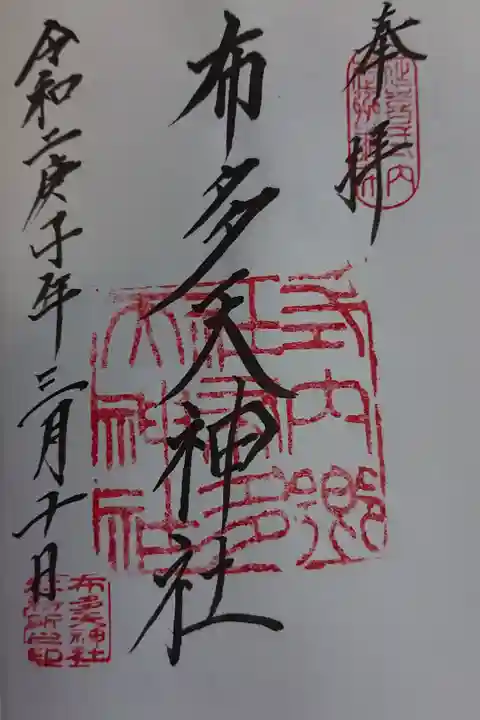 奉拝
延喜式内
布多天神社
式内郷
社布多
天神社
令和二庚子年三月十日
布多天神社
社務所之印